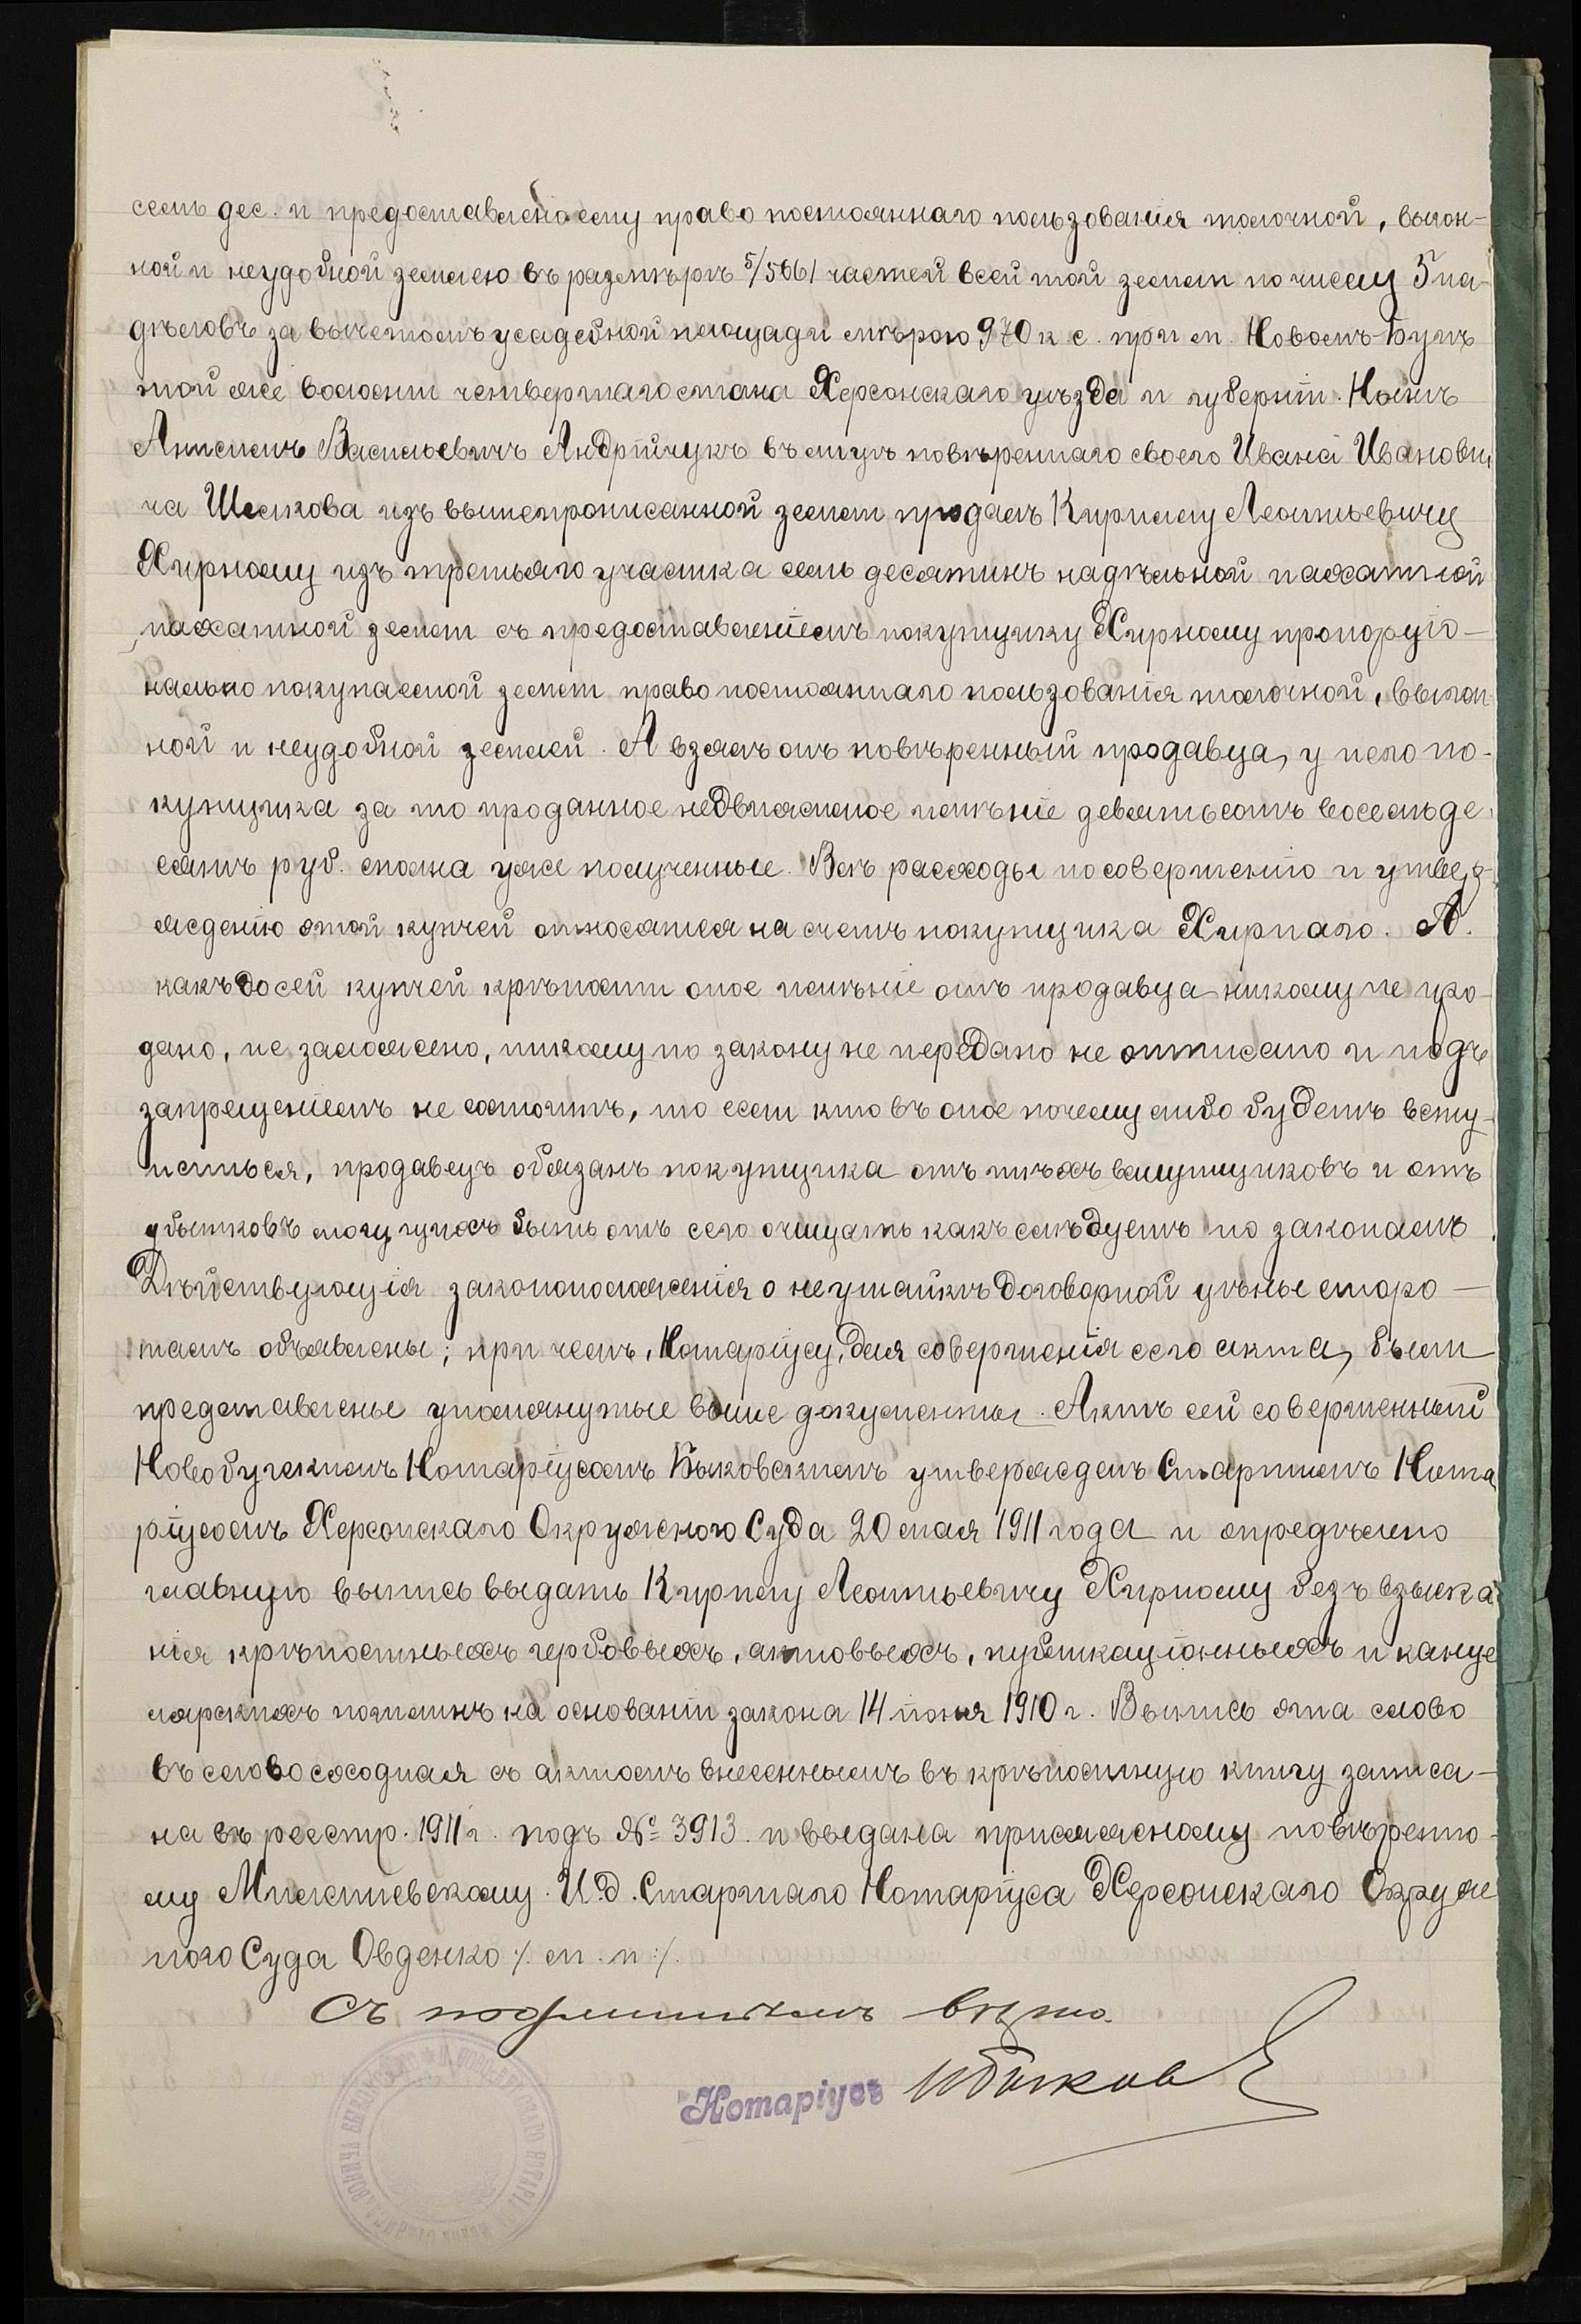 семь дес. и предоставлено ему право постояннаго пользованія толочной, выгон-
ной и неудобной землею въ размѣрѣ 5/5661 частей всей той земли по числу 5 на-
дѣловъ за вычетомъ усадебной площади мѣрою 970 к с. при м. Новомъ-Бугѣ
той же волости четвертаго стана Херсонскаго уѣзда и губерніи. Нынѣ
Анисимъ Васильевичъ Андрійчукъ въ лицѣ повѣреннаго своего Ивана Иванови
ча Шелкова изъ вышепрописанной земли продалъ Кирилу Леонтьевичу
Хирному изъ третьяго участка семь десятинъ надѣльной пахатной
пахатной земли съ предоставленіемъ покупщику Хирному пропорціо-
нально покупаемой земли право постояннаго пользованія толочной, выгон
ной и неудобной землей. А взялъ онъ повѣренный продавца, у него по-
купщика за то проданное недвижимое имѣніе девятьсотъ восемьде-
сятъ руб. сполна уже полученные. Всѣ расходы по совершенію и утвер-
жденію этой купчей относятся на счетъ покупщика Хирнаго. А.
какъ до сей купчей крѣпости оное имѣніе отъ продавца никому не про-
дано, не заложено, никому по закону не передано не отписано и подъ
запрещеніемъ не состоитъ, то если кто въ оное почему либо будетъ всту-
паться, продавецъ обязанъ покупщика отъ тѣхъ вступщиковъ и отъ
убытковъ могущихъ быть отъ сего очищать какъ слѣдуетъ по законамъ.
Дѣйствующія законоположенія о неутайкѣ договорной цѣны сторо-
намъ объявлены; при чемъ, Нотаріусу, для совершенія сего акта, были
представлены упомянутые выше документы. Актъ сей совершенный
Новобугскимъ Нотаріусомъ Быковскимъ утвержденъ Старшимъ Нота
ріусомъ Херсонскаго Окружного Суда 20 мая 1911 года и опредѣлено
главную выпись выдать Кирилу Леонтьевичу Хирному безъ взыска
нія крѣпостныхъ гербовыхъ, актовыхъ, публикаціонныхъ и канце
лярскихъ пошлинъ на основаніи закона 14 іюня 1910 г. Выпись эта слово
въ слово сходная съ актомъ внесеннымъ въ крѣпостную книгу записа-
на въ реестр. 1911 г. подъ № 3913. и выдана присяжному повѣренно-
му Милятиевскому. И.д. Старшаго Нотаріуса Херсонскаго Окруж
ного Суда Овденко /. м. п. /.
Съ подлиннымъ вѣрно
Нотаріусъ